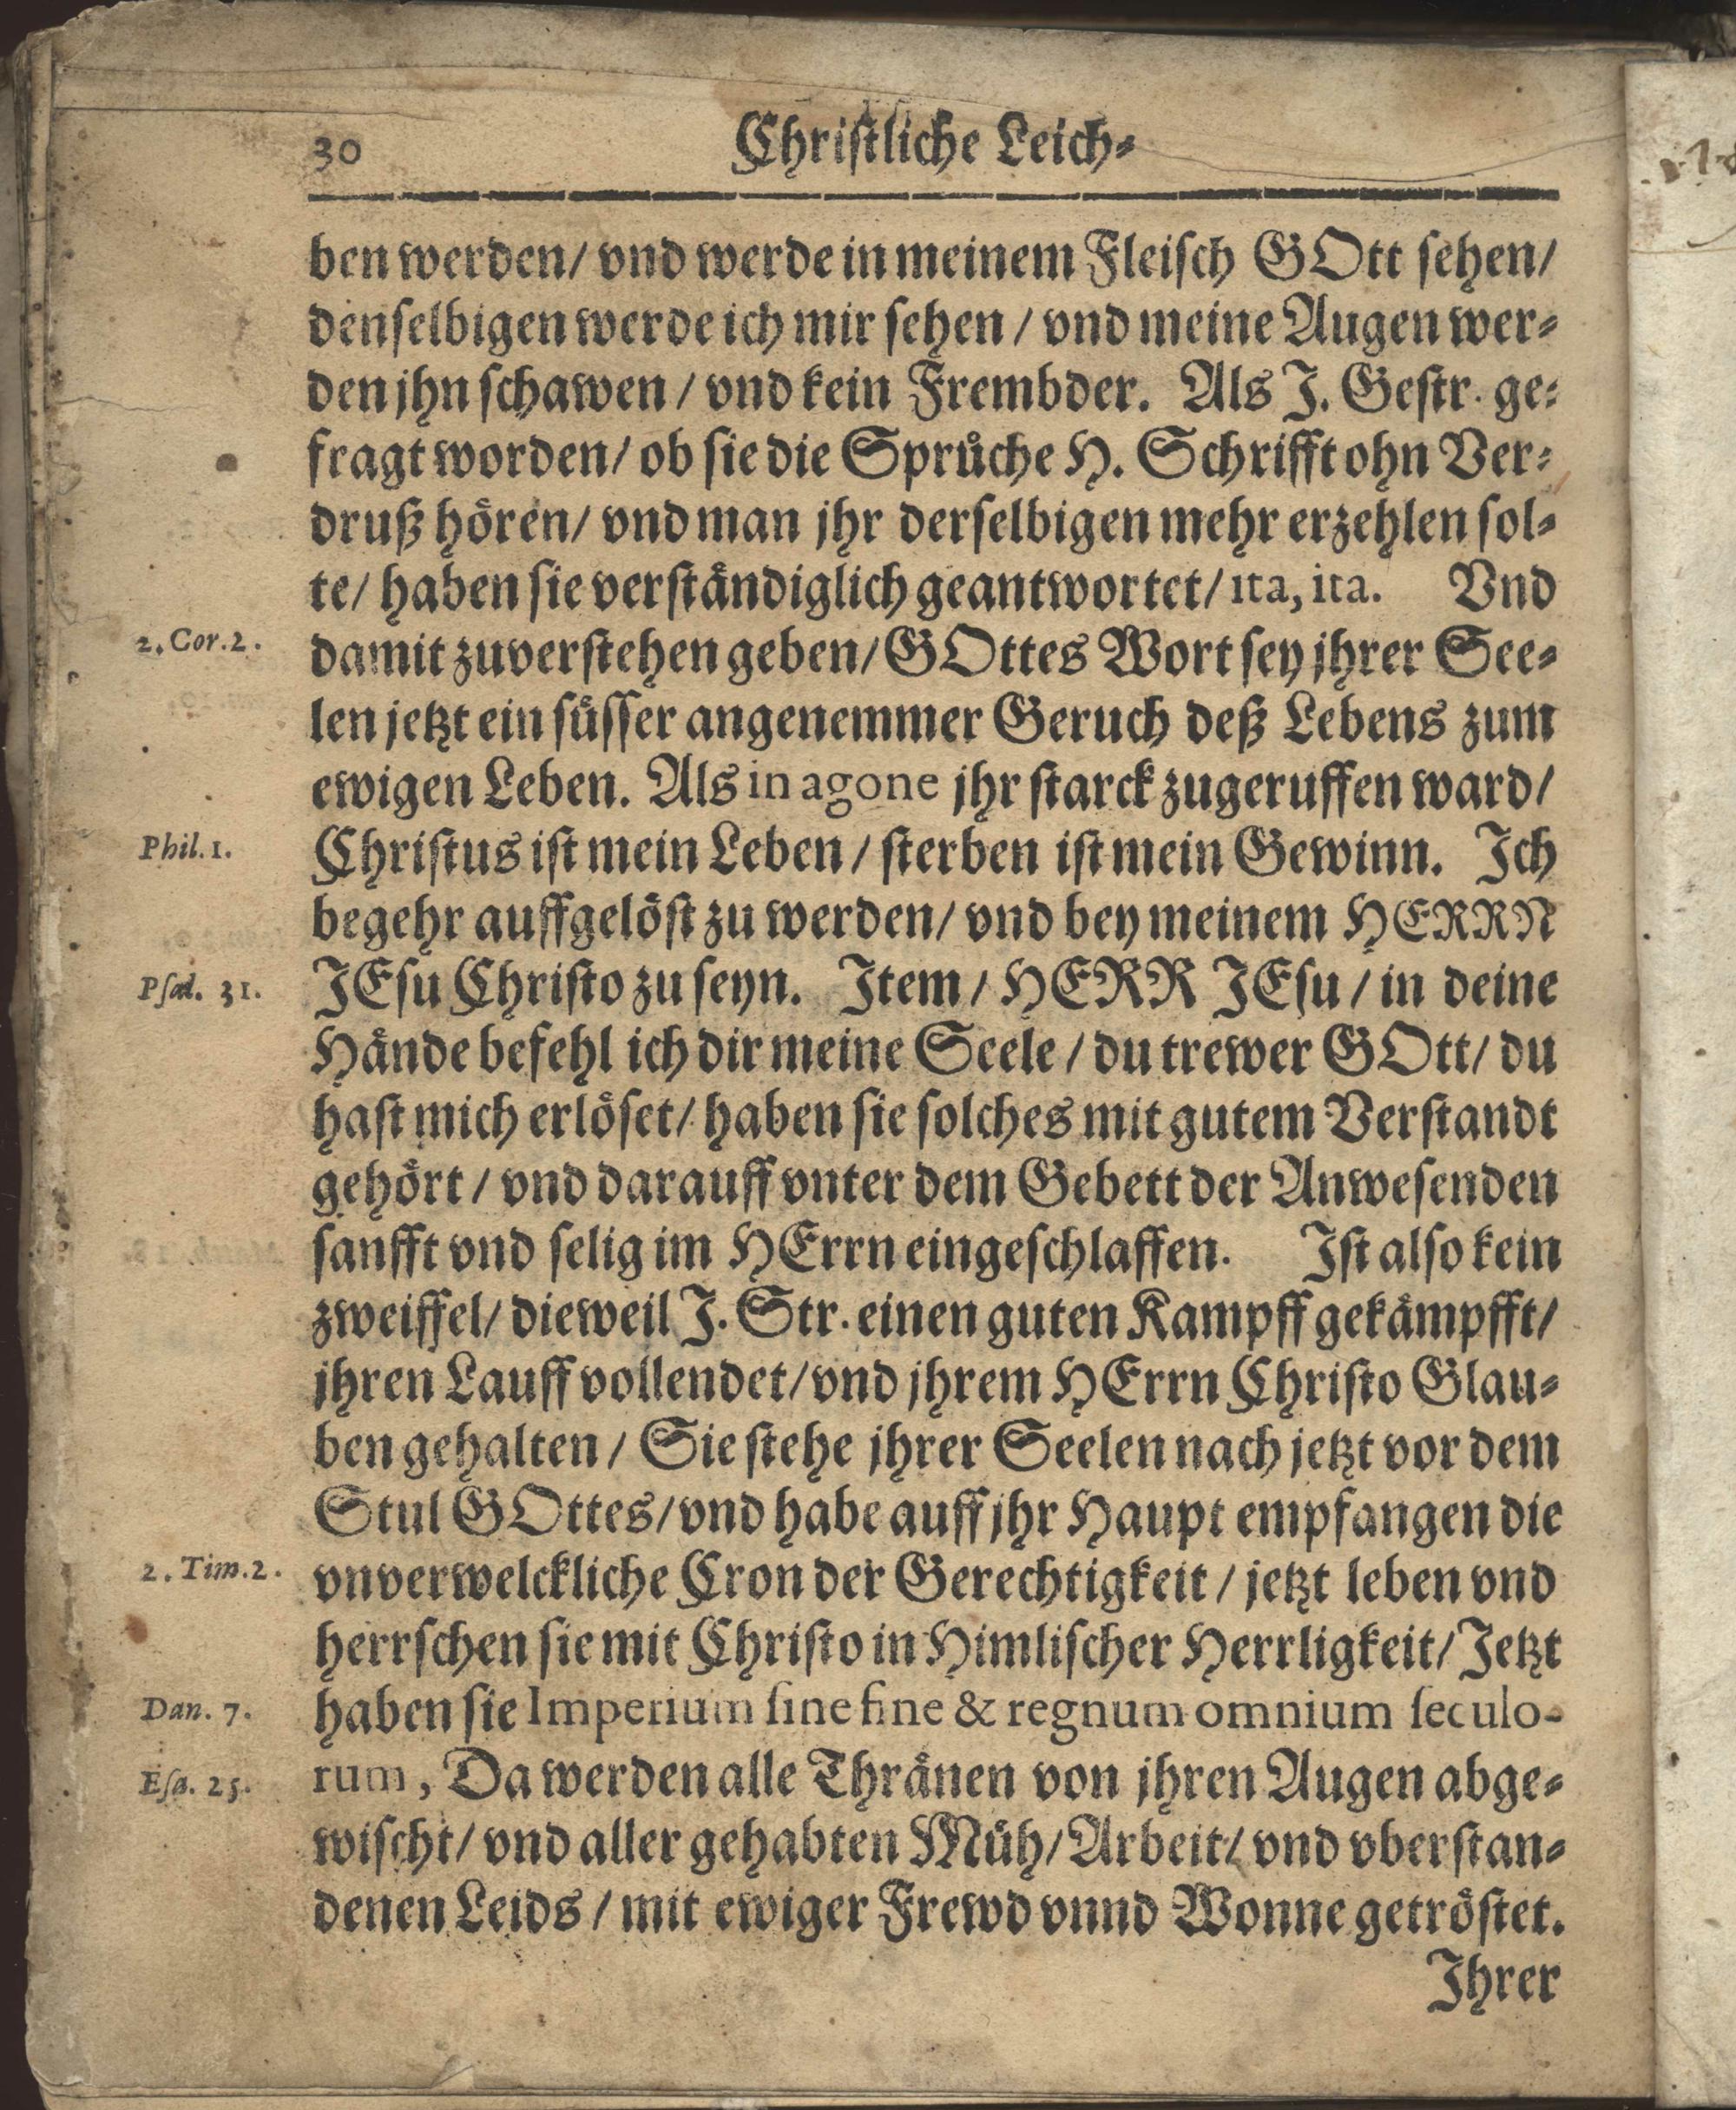 30
Christliche Leich-
ben werden/ vnd werde in meinem Fleisch GOtt sehen/
denselbigen werde ich mir sehen / vnd meine Augen wer-
den jhn schawen / vnd kein Frembder. Als J. Gestr. ge-
fragt worden/ ob sie die Sprüche H. Schrifft ohn Ver-
druß hören/ vnd man jhr derselbigen mehr erzehlen sol-
te/ haben sie verständiglich geantwortet/ ita, ita. Vnd
2. Cor. 2.
damit zuverstehen geben/ GOttes Wort sey jhrer See-
len jetzt ein süsser angenemmer Geruch deß Lebens zum
ewigen Leben. Als in agone jhr starck zugeruffen ward/
Phil. 1.
Christus ist mein Leben / sterben ist mein Gewinn. Ich
begehr auffgelöst zu werden/ vnd bey meinem HERRN
Psal. 31.
JEsu Christo zu seyn. Item / HERR JEsu / in deine
Hände befehl ich dir meine Seele / du trewer GOtt/ du
hast mich erlöset/ haben sie solches mit gutem Verstandt
gehört / vnd darauff vnter dem Gebett der Anwesenden
sanfft vnd selig im HErrn eingeschlaffen. Ist also kein
zweiffel/ dieweil J. Str. einen guten Kampff gekämpfft/
jhren Lauff vollendet/ vnd jhrem HErrn Christo Glau-
ben gehalten / Sie stehe jhrer Seelen nach jetzt vor dem
Stul GOttes/ vnd habe auff jhr Haupt empfangen die
2. Tim. 2.
vnverwelckliche Cron der Gerechtigkeit / jetzt leben vnd
herrschen sie mit Christo in Himlischer Herrligkeit/ Jetzt
Dan. 7.
haben sie Imperium sine fine & regnum omnium seculo-
Esa. 25.
rum, Da werden alle Thränen von jhren Augen abge-
wischt/ vnd aller gehabten Müh/ Arbeit/ vnd vberstan-
denen Leids / mit ewiger Frewd vnnd Wonne getröstet.
Ihrer